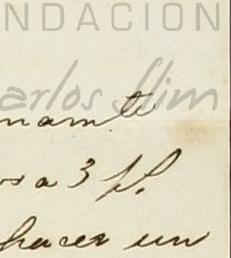 NDACION
arlos Slim
namte
os a 3 pl.
hacer un